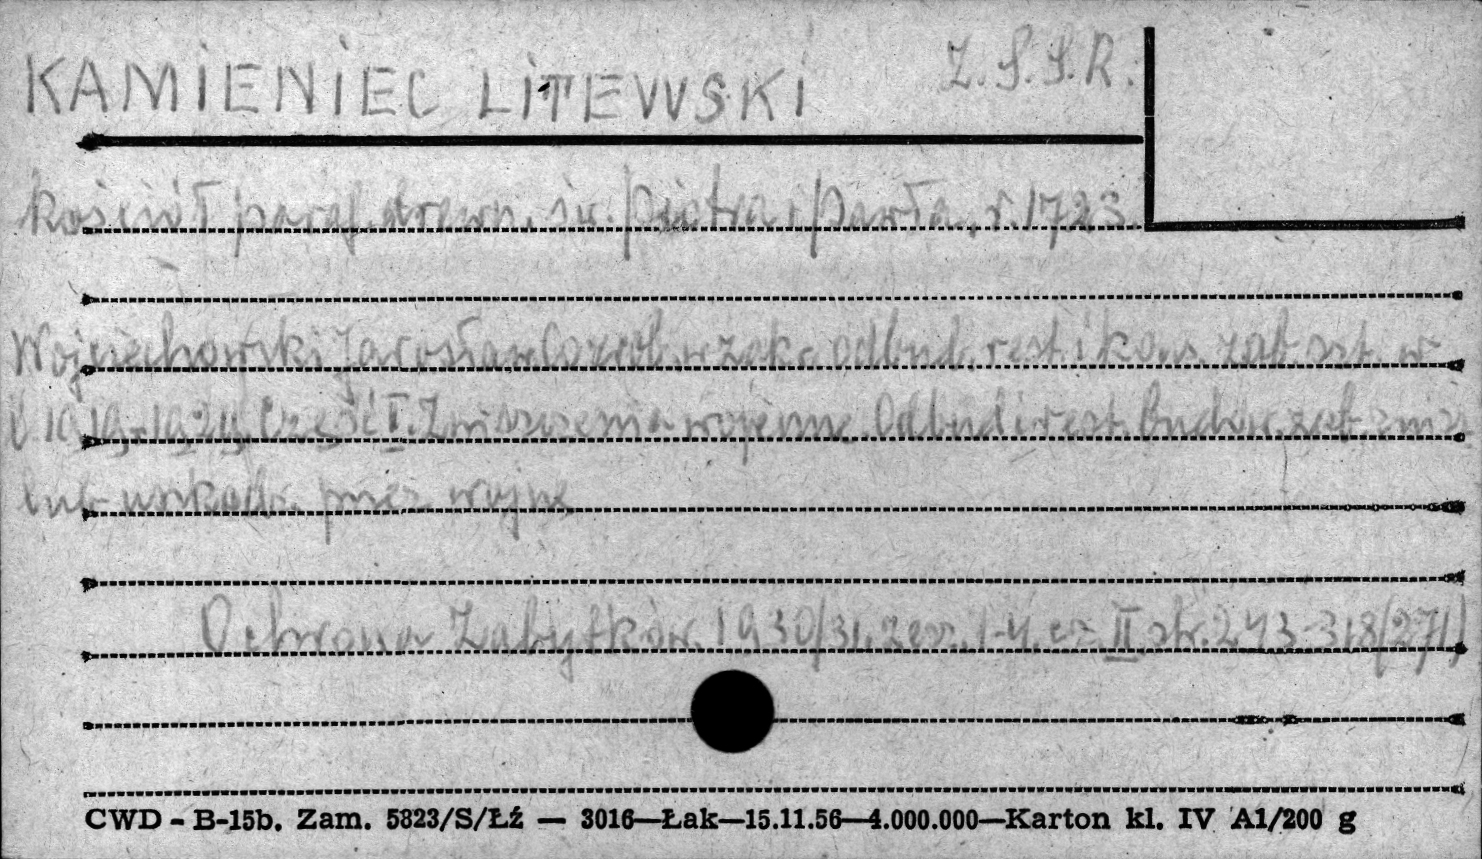 KAMIENIEC LITEWSKI Z.S.S.R.
kościół paraf. drewn. św. Piotra i Pawła, r. 1723.
Wojciechowski Jarosław Dorob. w zakr. odbud. rest. i kons. zab. szt. w
l 1919-1929. Część I. Zniszczenia wojenne. Odbud i rest. budow. zab. znisz.
lub uszkodz. przez wojnę
Ochrona Zabytków. 1930/31. zesz. 1-4. cz. II. str. 243-318 (271)
CWD - B-15b. Zam. 5823/S/Łź — 3016—Łak—15.11.56—4.000.000—Karton kl. IV A1/200 g